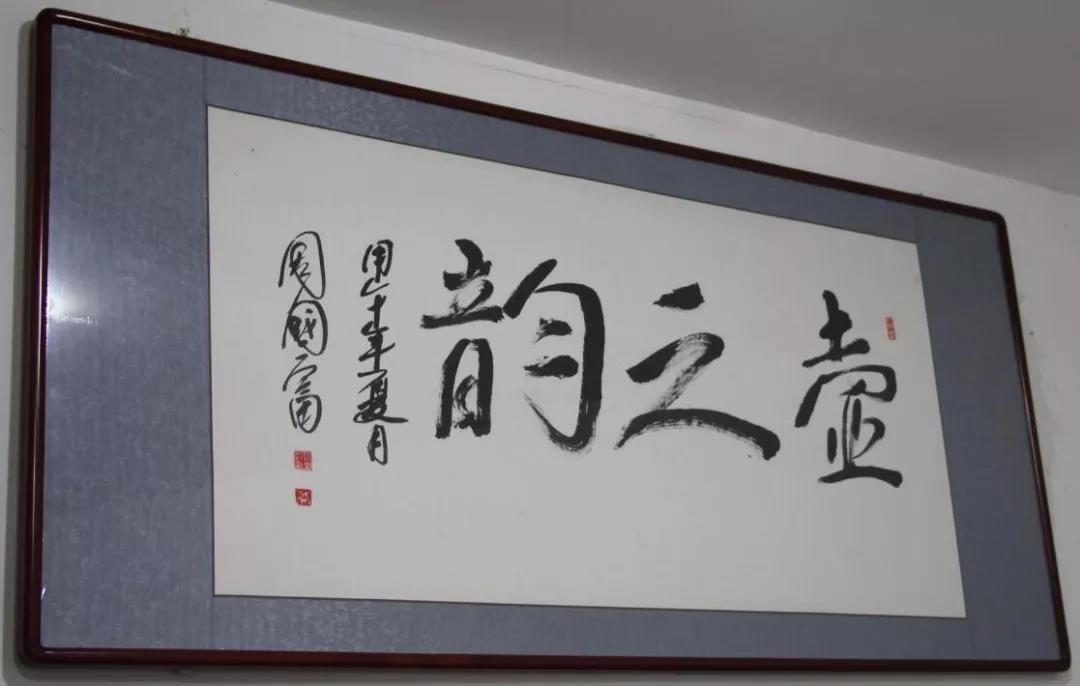 壶之韵
年夏月
周国富